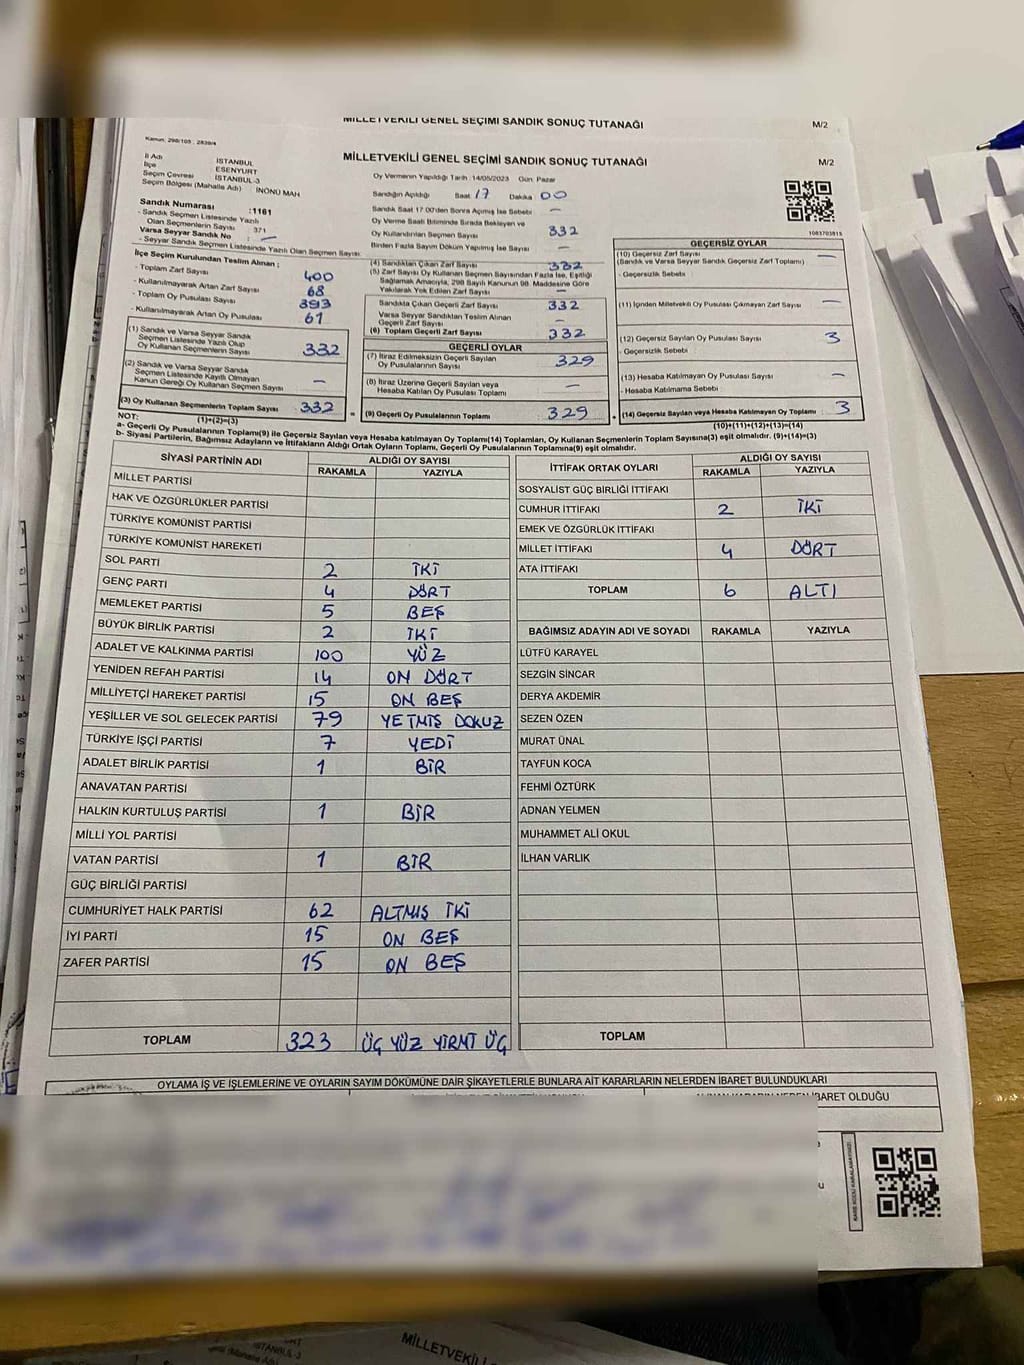 MİLLETVEKİLİ GENEL SEÇİMİ SANDIK SONUÇ TUTANAĞI
M/2
Kanun: 298/105 ; 2839/4
MİLLETVEKİLİ GENEL SEÇİMİ SANDIK SONUÇ TUTANAĞI
M/2
İl Adı İSTANBUL
İlçe ESENYURT
Seçim Çevresi İSTANBUL-3
Seçim Bölgesi (Mahalle Adı) İNÖNÜ MAH
Oy Vermenin Yapıldığı Tarih :14/05/2023 Gün: Pazar
Sandığın Açıldığı Saat 17 Dakika 00
Sandık Saat 17:00'den Sonra Açılmış İse Sebebi –
Oy Verme Saati Bitiminde Sırada Bekleyen ve
Oy Kullandırılan Seçmen Sayısı 332
Birden Fazla Sayım Döküm Yapılmış İse Sayısı –
1083703815
Sandık Numarası :1161
- Sandık Seçmen Listesinde Yazılı
Olan Seçmenlerin Sayısı 371
Varsa Seyyar Sandık No –
- Seyyar Sandık Seçmen Listesinde Yazılı Olan Seçmen Sayısı:
İlçe Seçim Kurulundan Teslim Alınan ;
- Toplam Zarf Sayısı 400
- Kullanılmayarak Artan Zarf Sayısı 68
- Toplam Oy Pusulası Sayısı 393
- Kullanılmayarak Artan Oy Pusulası 61
(1) Sandık ve Varsa Seyyar Sandık
Seçmen Listesinde Yazılı Olup
Oy Kullanan Seçmenlerin Sayısı 332
(2) Sandık ve Varsa Seyyar Sandık
Seçmen Listesinde Kayıtlı Olmayan
Kanun Gereği Oy Kullanan Seçmen Sayısı –
(3) Oy Kullanan Seçmenlerin Toplam Sayısı 332
(1)+(2)=(3)
(4) Sandıktan Çıkan Zarf Sayısı 332
(5) Zarf Sayısı Oy Kullanan Seçmen Sayısından Fazla İse, Eşitliği
Sağlamak Amacıyla, 298 Sayılı Kanunun 98. Maddesine Göre
Yakılarak Yok Edilen Zarf Sayısı –
Sandıkta Çıkan Geçerli Zarf Sayısı 332
Varsa Seyyar Sandıktan Teslim Alınan
Geçerli Zarf Sayısı –
(6) Toplam Geçerli Zarf Sayısı 332
GEÇERLİ OYLAR
(7) İtiraz Edilmeksizin Geçerli Sayılan
Oy Pusulalarının Sayısı 329
(8) İtiraz Üzerine Geçerli Sayılan veya
Hesaba Katılan Oy Pusulaları Toplamı –
= (9) Geçerli Oy Pusulalarının Toplamı 329
GEÇERSİZ OYLAR
(10) Geçersiz Zarf Sayısı
(Sandık ve Varsa Seyyar Sandık Geçersiz Zarf Toplamı) –
- Geçersizlik Sebebi
(11) İçinden Milletvekili Oy Pusulası Çıkmayan Zarf Sayısı –
(12) Geçersiz Sayılan Oy Pusulası Sayısı 3
- Geçersizlik Sebebi
(13) Hesaba Katılmayan Oy Pusulası Sayısı –
- Hesaba Katılmama Sebebi
+ (14) Geçersiz Sayılan veya Hesaba Katılmayan Oy Toplamı 3
(10)+(11)+(12)+(13)=(14)
NOT:
a- Geçerli Oy Pusulalarının Toplamı(9) ile Geçersiz Sayılan veya Hesaba katılmayan Oy Toplamı(14) Toplamları, Oy Kullanan Seçmenlerin Toplam Sayısına(3) eşit olmalıdır. (9)+(14)=(3)
b- Siyasi Partilerin, Bağımsız Adayların ve İttifakların Aldığı Ortak Oyların Toplamı, Geçerli Oy Pusulalarının Toplamına(9) eşit olmalıdır.
SİYASİ PARTİNİN ADI ALDIĞI OY SAYISI
RAKAMLA YAZIYLA
MİLLET PARTİSİ
HAK VE ÖZGÜRLÜKLER PARTİSİ
TÜRKİYE KOMÜNİST PARTİSİ
TÜRKİYE KOMÜNİST HAREKETİ
SOL PARTİ 2 İKİ
GENÇ PARTİ 4 DÖRT
MEMLEKET PARTİSİ 5 BEŞ
BÜYÜK BİRLİK PARTİSİ 2 İKİ
ADALET VE KALKINMA PARTİSİ 100 YÜZ
YENİDEN REFAH PARTİSİ 14 ON DÖRT
MİLLİYETÇİ HAREKET PARTİSİ 15 ON BEŞ
YEŞİLLER VE SOL GELECEK PARTİSİ 79 YETMİŞ DOKUZ
TÜRKİYE İŞÇİ PARTİSİ 7 YEDİ
ADALET BİRLİK PARTİSİ 1 BİR
ANAVATAN PARTİSİ
HALKIN KURTULUŞ PARTİSİ 1 BİR
MİLLİ YOL PARTİSİ
VATAN PARTİSİ 1 BİR
GÜÇ BİRLİĞİ PARTİSİ
CUMHURİYET HALK PARTİSİ 62 ALTMIŞ İKİ
İYİ PARTİ 15 ON BEŞ
ZAFER PARTİSİ 15 ON BEŞ
TOPLAM 323 ÜÇ YÜZ YİRMİ ÜÇ
İTTİFAK ORTAK OYLARI ALDIĞI OY SAYISI
RAKAMLA YAZIYLA
SOSYALİST GÜÇ BİRLİĞİ İTTİFAKI
CUMHUR İTTİFAKI 2 İKİ
EMEK VE ÖZGÜRLÜK İTTİFAKI
MİLLET İTTİFAKI 4 DÖRT
ATA İTTİFAKI
TOPLAM 6 ALTI
BAĞIMSIZ ADAYIN ADI VE SOYADI RAKAMLA YAZIYLA
LÜTFÜ KARAYEL
SEZGİN SİNCAR
DERYA AKDEMİR
SEZEN ÖZEN
MURAT ÜNAL
TAYFUN KOCA
FEHMİ ÖZTÜRK
ADNAN YELMEN
MUHAMMET ALİ OKUL
İLHAN VARLIK
TOPLAM
OYLAMA İŞ VE İŞLEMLERİNE VE OYLARIN SAYIM DÖKÜMÜNE DAİR ŞİKAYETLERLE BUNLARA AİT KARARLARIN NELERDEN İBARET BULUNDUKLARI
İBARET OLDUĞU
KARE KODU KARALAMAYINIZ!
İSTANBUL-3
MİLLETVEKİLİ